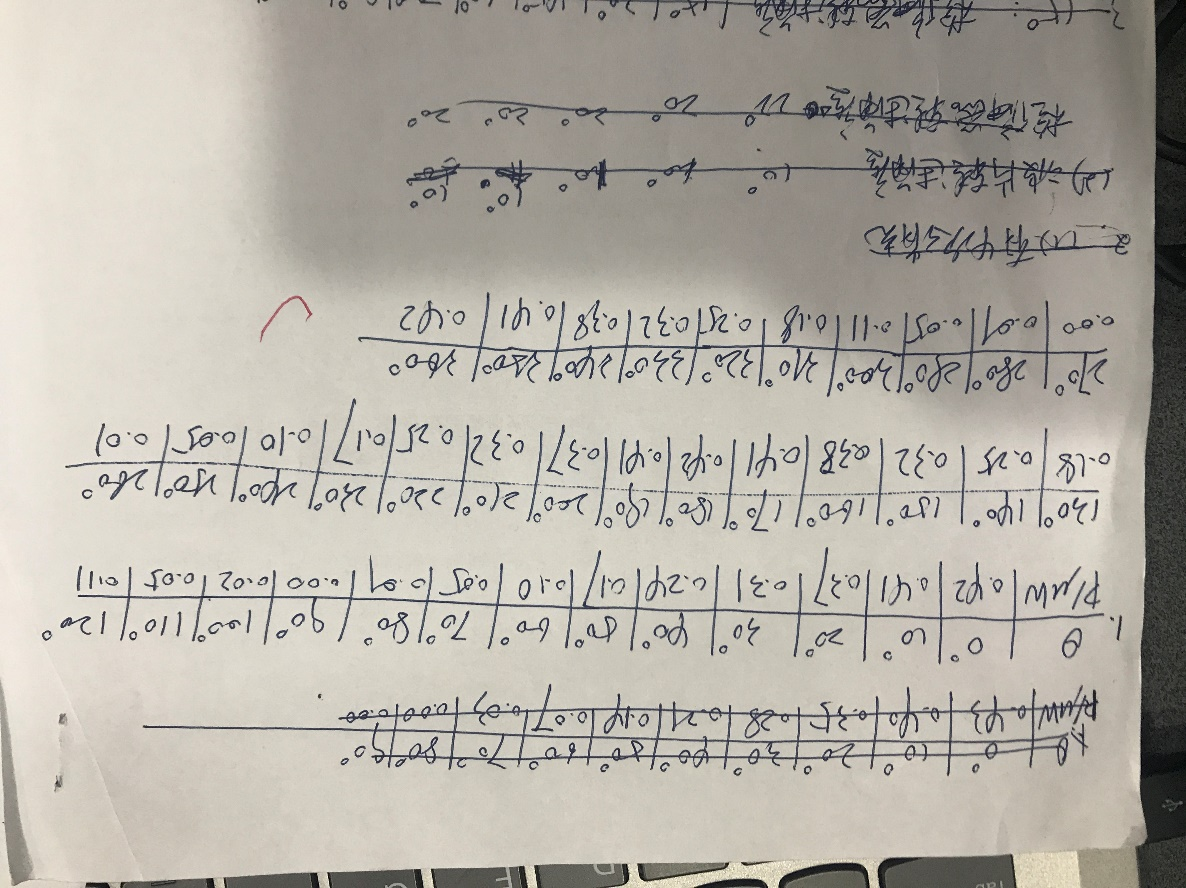 θ | 0° | 10° | 20° | 30° | 40° | 50° | 60° | 70° | 80° | 90°
P/μW | 0.43 | 0.40 | 0.35 | 0.28 | 0.21 | 0.14 | 0.07 | 0.03 | 0.00 | 0.00
1. θ | 0° | 10° | 20° | 30° | 40° | 50° | 60° | 70° | 80° | 90° | 100° | 110° | 120°
P/μW | 0.42 | 0.41 | 0.37 | 0.31 | 0.24 | 0.17 | 0.10 | 0.05 | 0.01 | 0.00 | 0.02 | 0.05 | 0.11
130° | 140° | 150° | 160° | 170° | 180° | 190° | 200° | 210° | 220° | 230° | 240° | 250° | 260°
0.18 | 0.25 | 0.32 | 0.38 | 0.41 | 0.42 | 0.41 | 0.37 | 0.32 | 0.25 | 0.17 | 0.10 | 0.05 | 0.01
270° | 280° | 290° | 300° | 310° | 320° | 330° | 340° | 350° | 360°
0.00 | 0.01 | 0.05 | 0.11 | 0.18 | 0.25 | 0.32 | 0.38 | 0.41 | 0.42
2. (1)
(2) 波片转过角度 10° 10° 10° 10° 10°
检偏器转过角度 20° 20° 20° 20°
检偏器转过角度